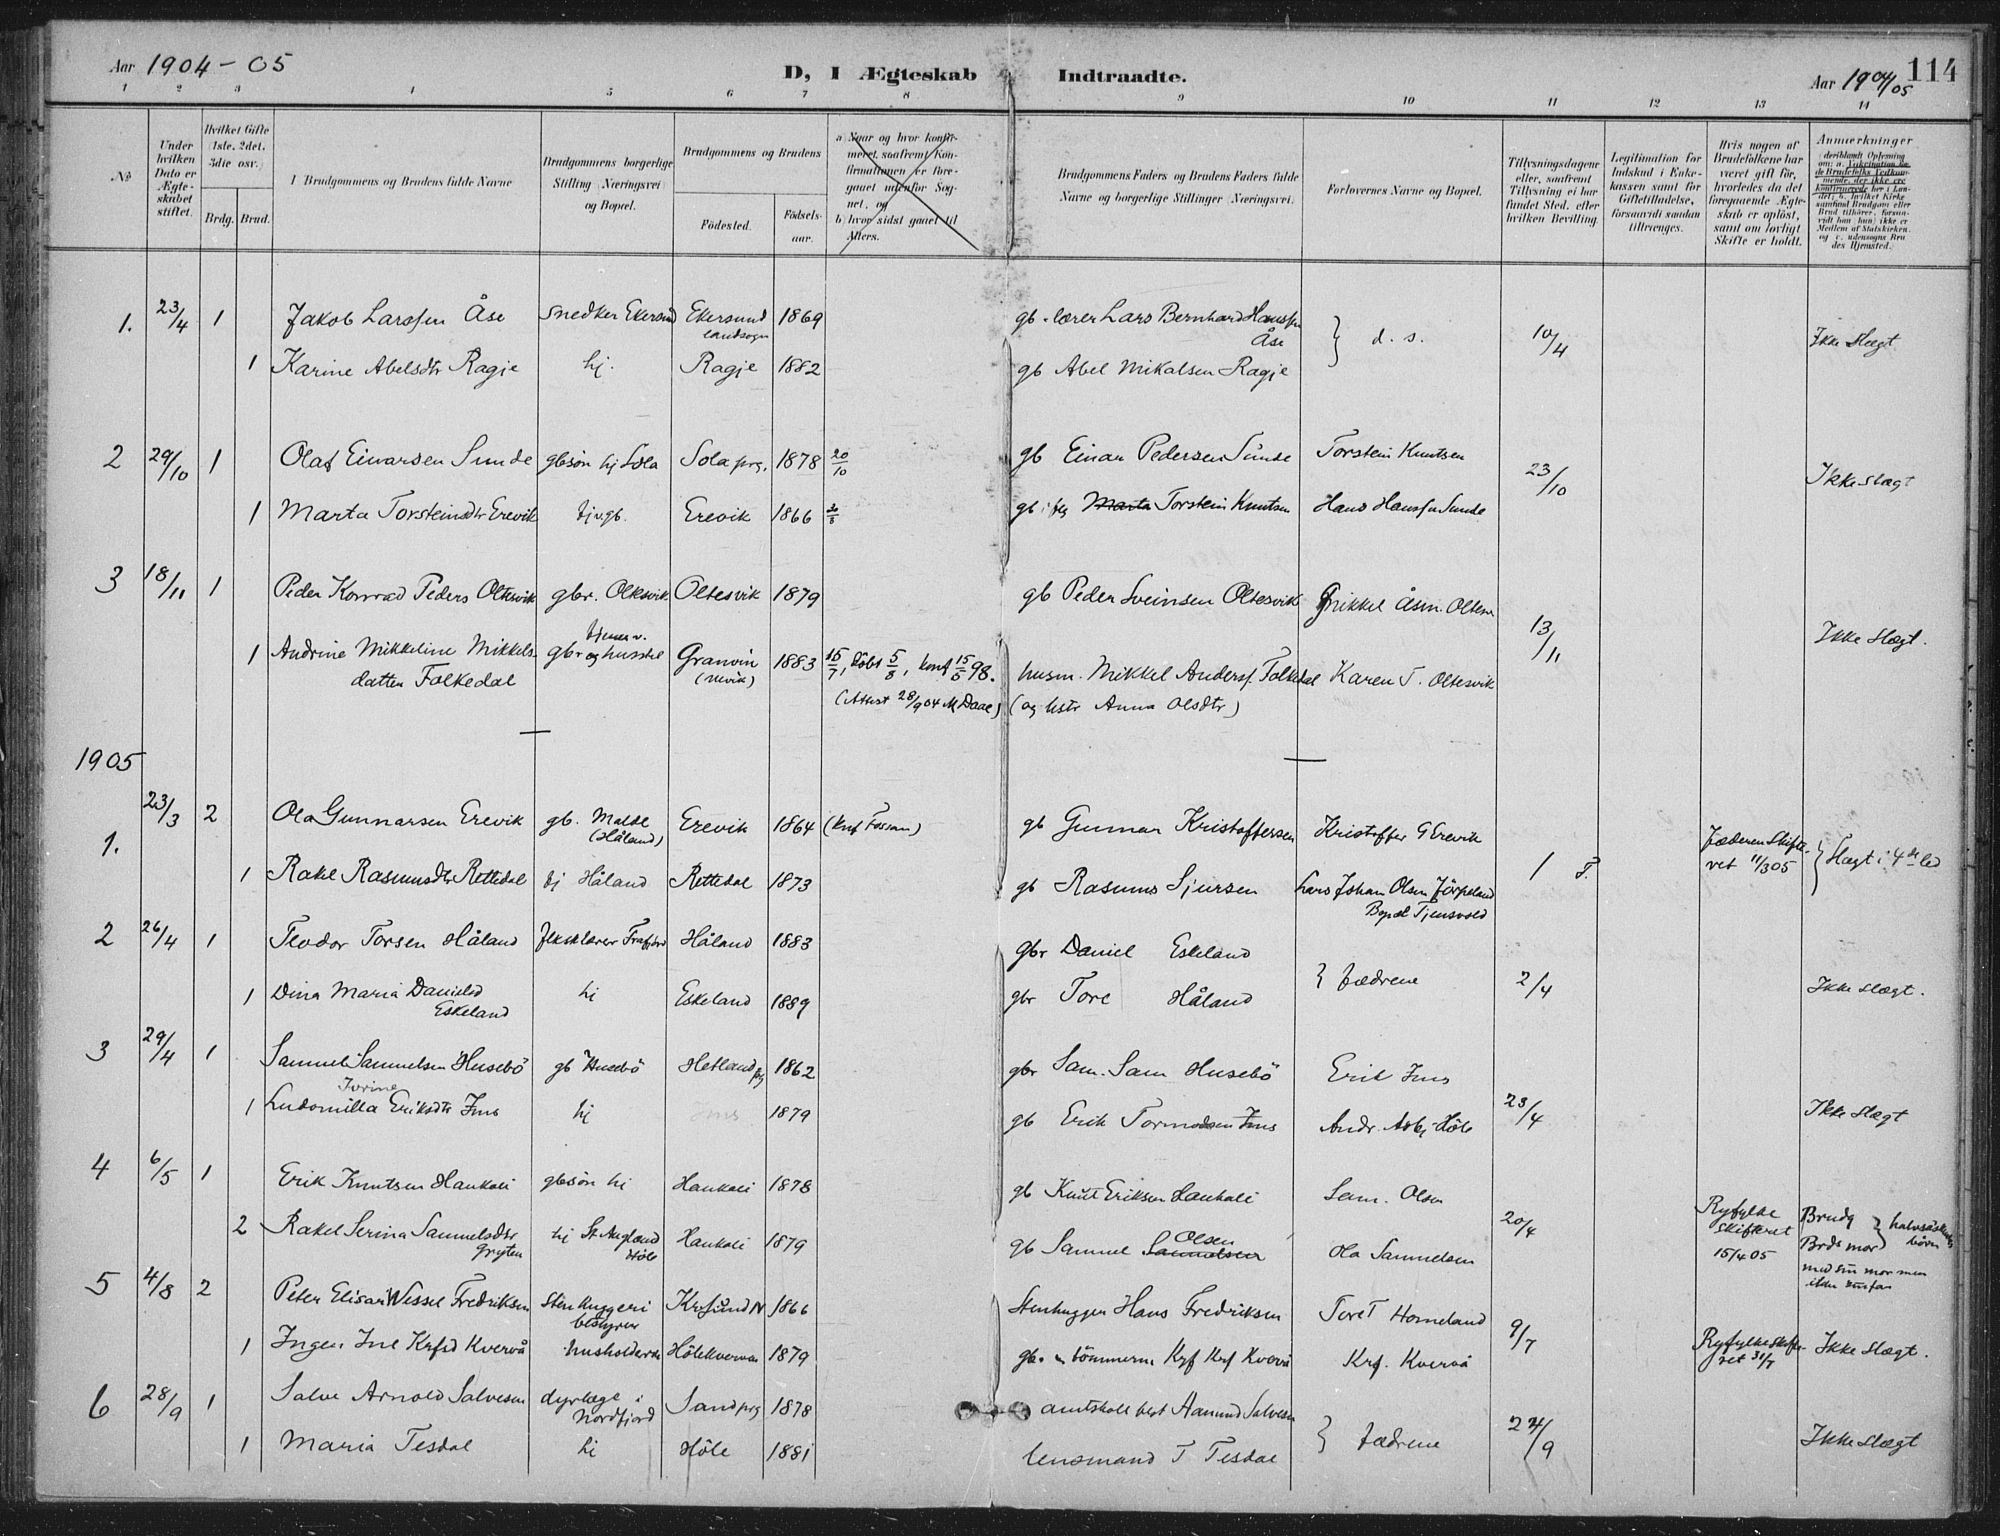 Aar 1904-05
D, I Ægteskab Indtraadte.
Aar 1904/05
114
1 2 3 4 5 6 7 8 9 10 11 12 13 14
No
Under hvilken Dato er Ægteskabet stiftet.
Hvilket Gifte (1ste, 2det, 3die osv.)
Brdg. Brud.
I Brudgommens og Brudens fulde Navne
Brudgommens borgerlige Stilling (Næringsvei og Bopæl.
Brudgommens og Brudens
Fødested. Fødselsaar.
a Naar og hvor konfirmeret, saafremt Konfirmationen er foregaaet udenfor Sognet, og
b hvor sidst gaaet til Alters.
Brudgommens Faders og Brudens Faders fulde Navne og borgerlige Stillinger (Næringsvei.
Forlovernes Navne og Bopæl.
Tillysningsdagene eller, saafremt Tillysning ei har fundet Sted, efter hvilken Bevilling.
Legitimation for Indskud i Enkekassen samt for Giftetilladelse, forsaavidt saadan tiltrænges.
Hvis nogen af Brudefolkene har været gift før, hvorledes da det foregaaende Ægteskab er opløst, samt om lovligt Skifte er holdt.
Anmerkninger
1. 23/4 1 Jakob Larssen Åse Snedker Ekersund Ekersund landsogn 1869 gb. lærer Lars Bernhard Hanssen Åse } d. s. 10/4 Ikke Slægt
1 Karine Abelsdtr Ragje hj. Ragje 1882 gb Abel Mikalsen Ragje
2 29/10 1 Olaf Einarsen Sunde gbsøn hj Sola Sola prg. 1878 20/10 gb Einar Pedersen Sunde Torstein Knutsen 23/10 Ikke slægt
1 Marta Torsteinsdtr Erevik Erevik 1866 gb Marta Torstein Knutsen Hans Hanssen Sunde
3 18/11 1 Peder Konrad Peders Oltesvik gbr. Oltesvik Oltesvik 1879 gb Peder Sveinsen Oltesvik Mikkel Åsm. Oltesv 13/11 Ikke Slægt.
1 Andrine Mikkeline Mikkelsdatter Folkedal tjener v. gbr og husstel Granvin (Ulvik) 1883 15/7, døbt 5/8, konf 15/5 98. husm. Mikkel Anders. Folkedal Karen T. Oltesvik
(Attest 28/9 04 M Daae) (og hstr Anna Olsdtr)
1905
1. 23/3 2 Ola Gunnarsen Erevik gb. Malde (Håland) Erevik 1864 gb Gunnar Kristoffersen Kristoffer G Erevik 1 F. Jæderen Skifteret 11/3 05 } Slægt i 4de led
1 Rakel Rasmusdtr Rettedal tj Håland Rettedal 1873 gb Rasmus Sjursen Lars Johan Olsen Jørpeland Bopæl Tjensvold
2 26/4 1 Teodor Torsen Håland Frafjord Håland 1883 gbr Daniel Eskeland } fædrene 2/4 Ikke slægt.
1 Dina Maria Danielsd Eskeland hj Eskeland 1889 gbr Tore Håland
3 29/4 1 Samuel Samuelsen Husebö gb Husebö Hetland prg 1862 gbr Sam. Sam Husebö Erik Ims 23/4 Ikke Slægt
1 Ludomilla Torine Eriksdtr Ims hj Ims 1879 gb Erik Tormodsen Ims Andr. Asbj. Höle
4 6/5 1 Erik Knutsen Haukali gbsøn hj Haukali 1878 gb Knut Eriksen Haukali Sam. Olsen 20/4 Ryfylke skifteret 15/4 05 Brudg } halvsøskenbørn Brds mor
2 Rakel Serina Samuelsdtr Gryten hj Höle Haukali 1879 gb Samuel Samuelsen Olsen Ola Samuelsen med sin mor men ikke sin far
5 4/8 2 Peter Elisar Wessel Fredriksen Stenhuggeri bestyrer Krfsund N 1866 Stenhugger Hans Fredriksen Tore T Homeland 9/7 Ryfylke skifteret 31/7 Ikke Slægt.
1 Inger Ine Krfsd Kvervå husholderske Höle 1879 gb. tömmerm Krf Krf Kvervå Krf. Kvervå
6 28/9 1 Salve Arnold Salvesen dyrlæge i Nordfjord Sand prg 1878 Aamund Salvesen } fædrene 24/9 Ikke Slægt
1 Maria Tesdal hj Höle 1881 lensmand T Tesdal